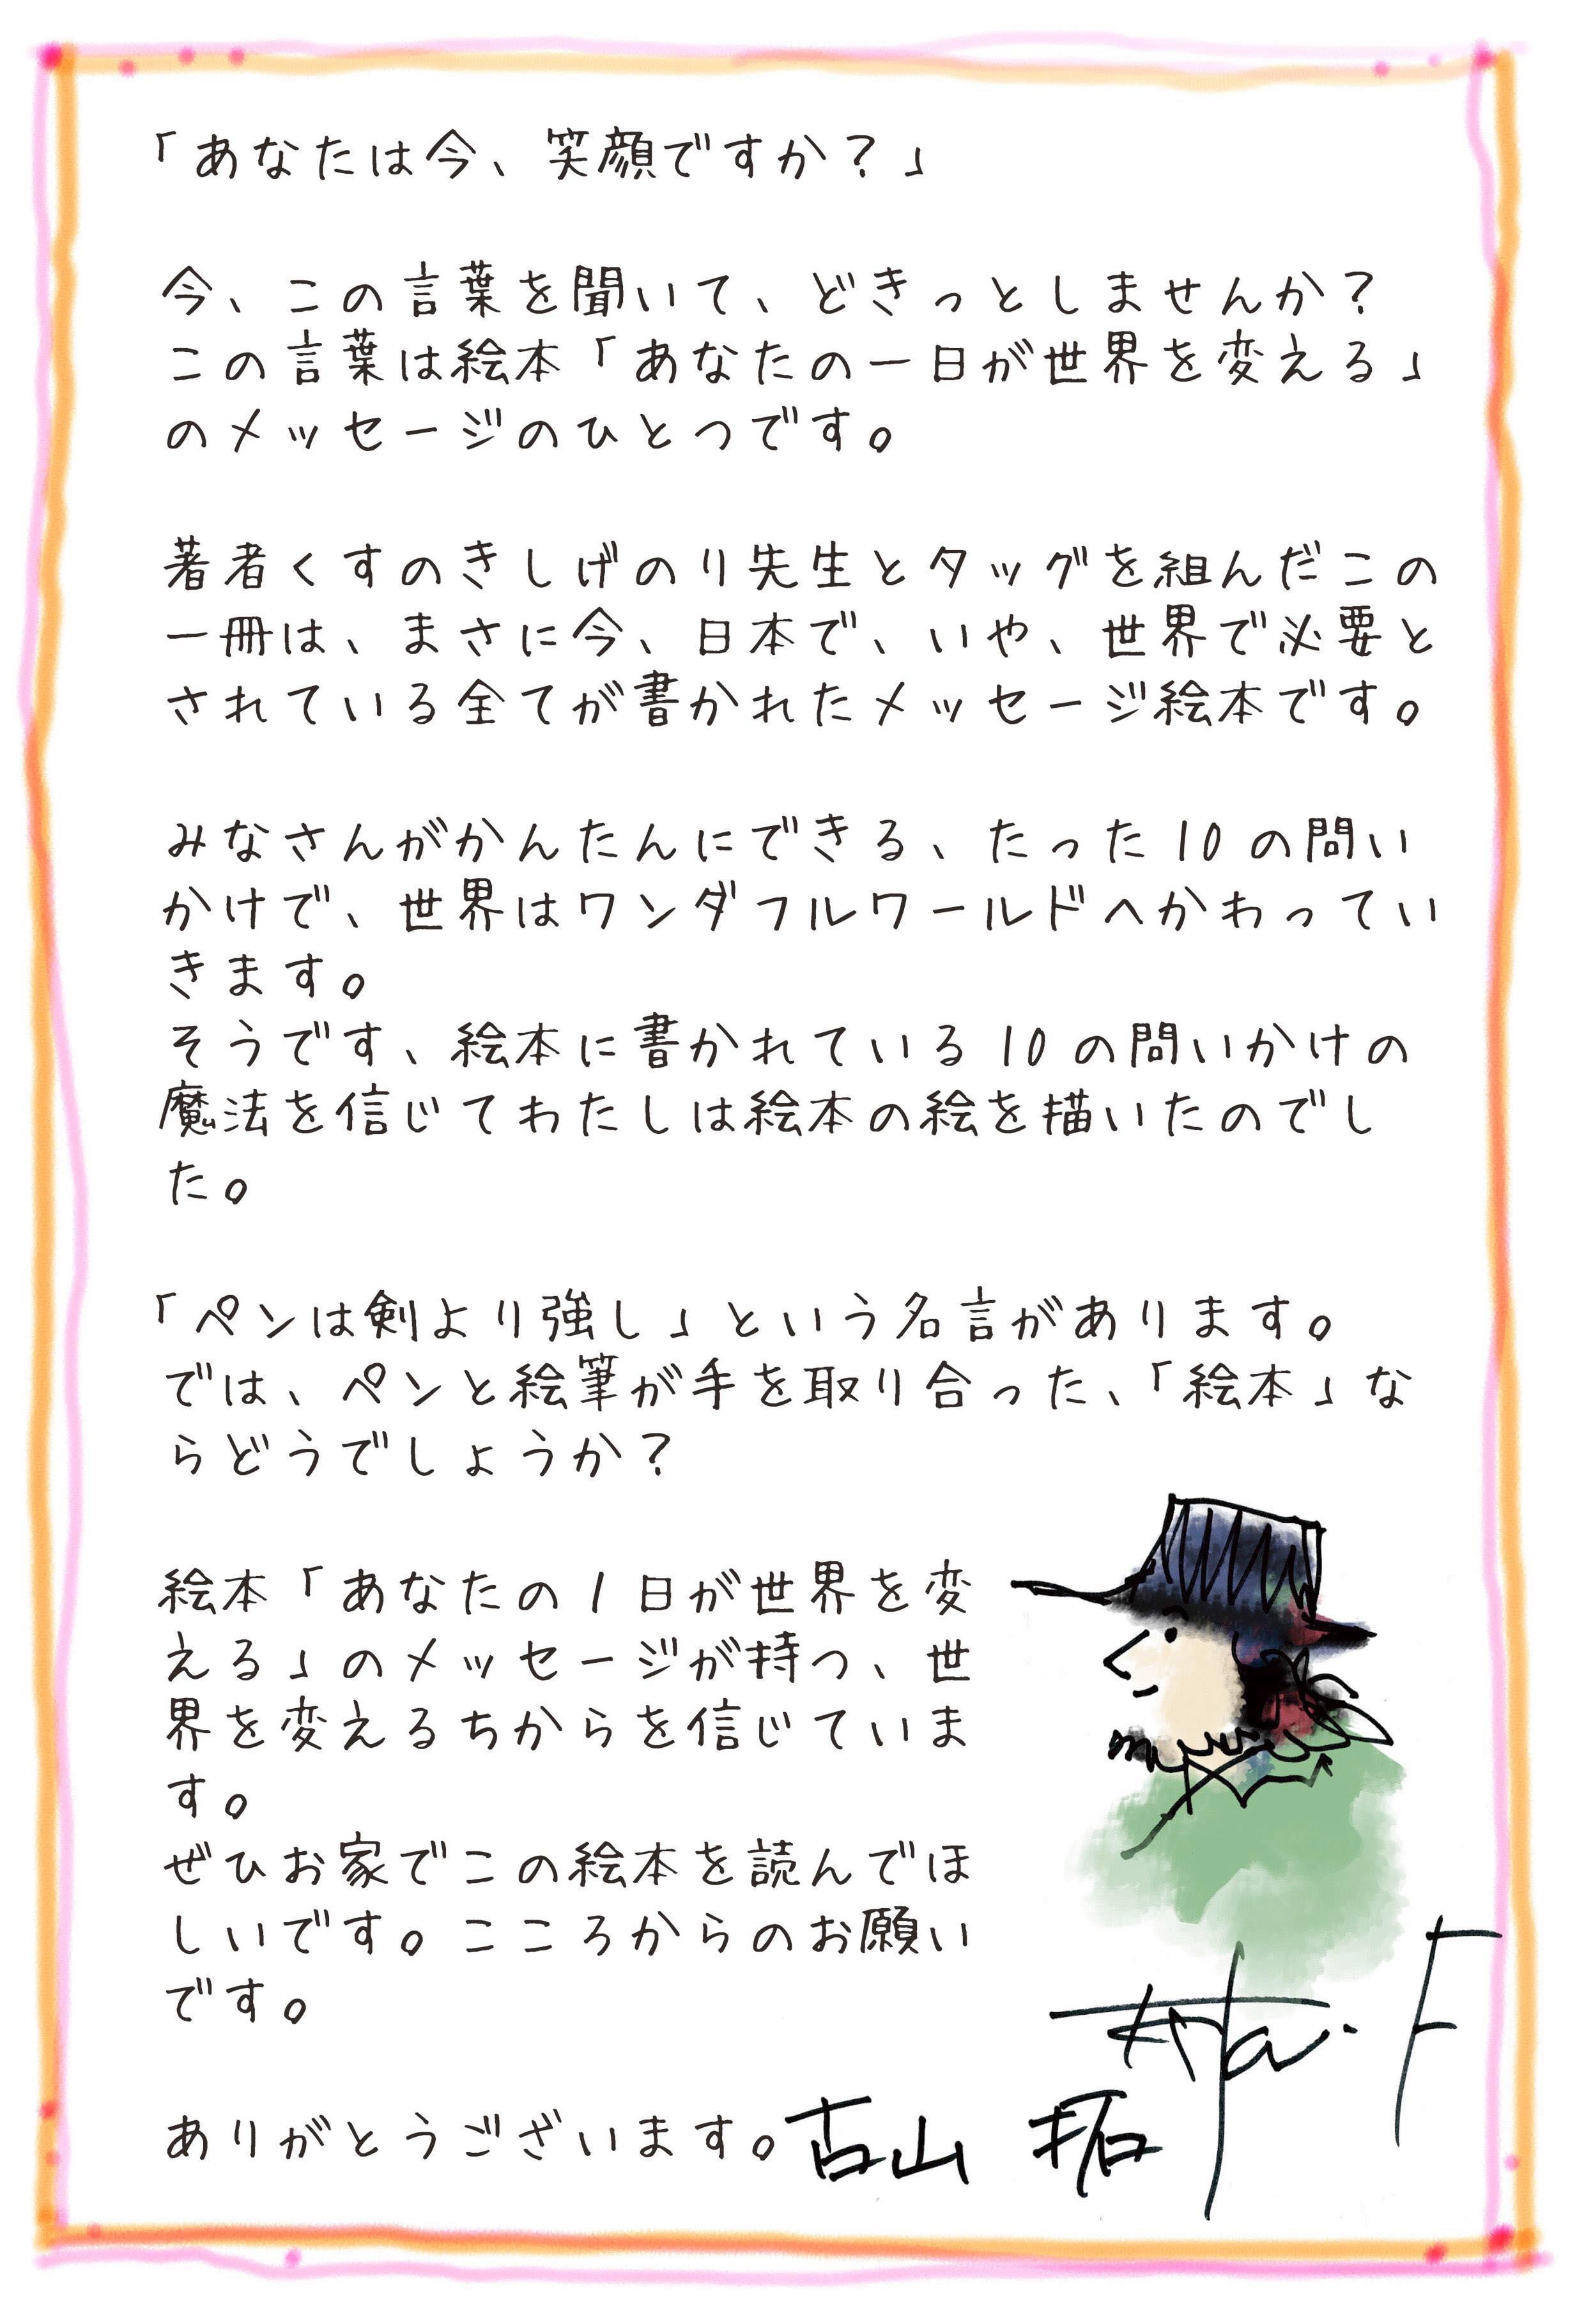 「あなたは今、笑顔ですか？」
今、この言葉を聞いて、どきっとしませんか？
この言葉は絵本「あなたの一日が世界を変える」
のメッセージのひとつです。
著者くすのきしげのり先生とタッグを組んだこの
一冊は、まさに今、日本で、いや、世界で必要と
されている全てが書かれたメッセージ絵本です。
みなさんがかんたんにできる、たった10の問い
かけで、世界はワンダフルワールドへかわってい
きます。
そうです、絵本に書かれている10の問いかけの
魔法を信じてわたしは絵本の絵を描いたのでし
た。
「ペンは剣より強し」という名言があります。
では、ペンと絵筆が手を取り合った、「絵本」な
らどうでしょうか？
絵本「あなたの1日が世界を変
える」のメッセージが持つ、世
界を変えるちからを信じていま
す。
ぜひお家でこの絵本を読んでほ
しいです。こころからのお願い
です。
ありがとうございます。古山 拓